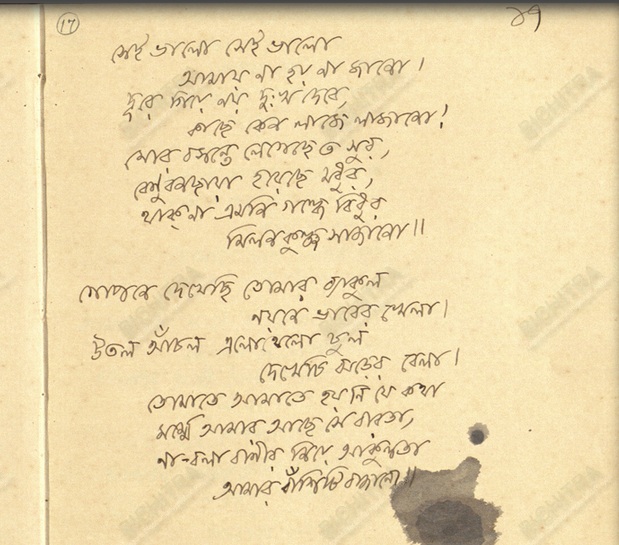 17
১৭
সেই ভালো সেই ভালো
আমায় না হয় না জানো।
দূরে গিয়ে নয় দুঃখ দেবে,
কাছে কেন লাজে লাজানো!
মোর বসন্তে লেগেছে ত সুর,
বেণুবনছায়া হয়েছে মধুর,
থাক্ না এমনি গন্ধে বিধুর
মিলনকুঞ্জ সাজানো॥
গোপনে দেখেছি তোমার ব্যাকুল
নয়নে ভাবের খেলা।
উতল আঁচল এলোথেলো চুল
দেখেছি ঝড়ের বেলা।
তোমাতে আমাতে হয় নি যে কথা
মর্ম্মে আমার আছে সে বারতা,
না-বলা বাণীর নিয়ে আকুলতা
আমার বাঁশিটি বাজানো॥